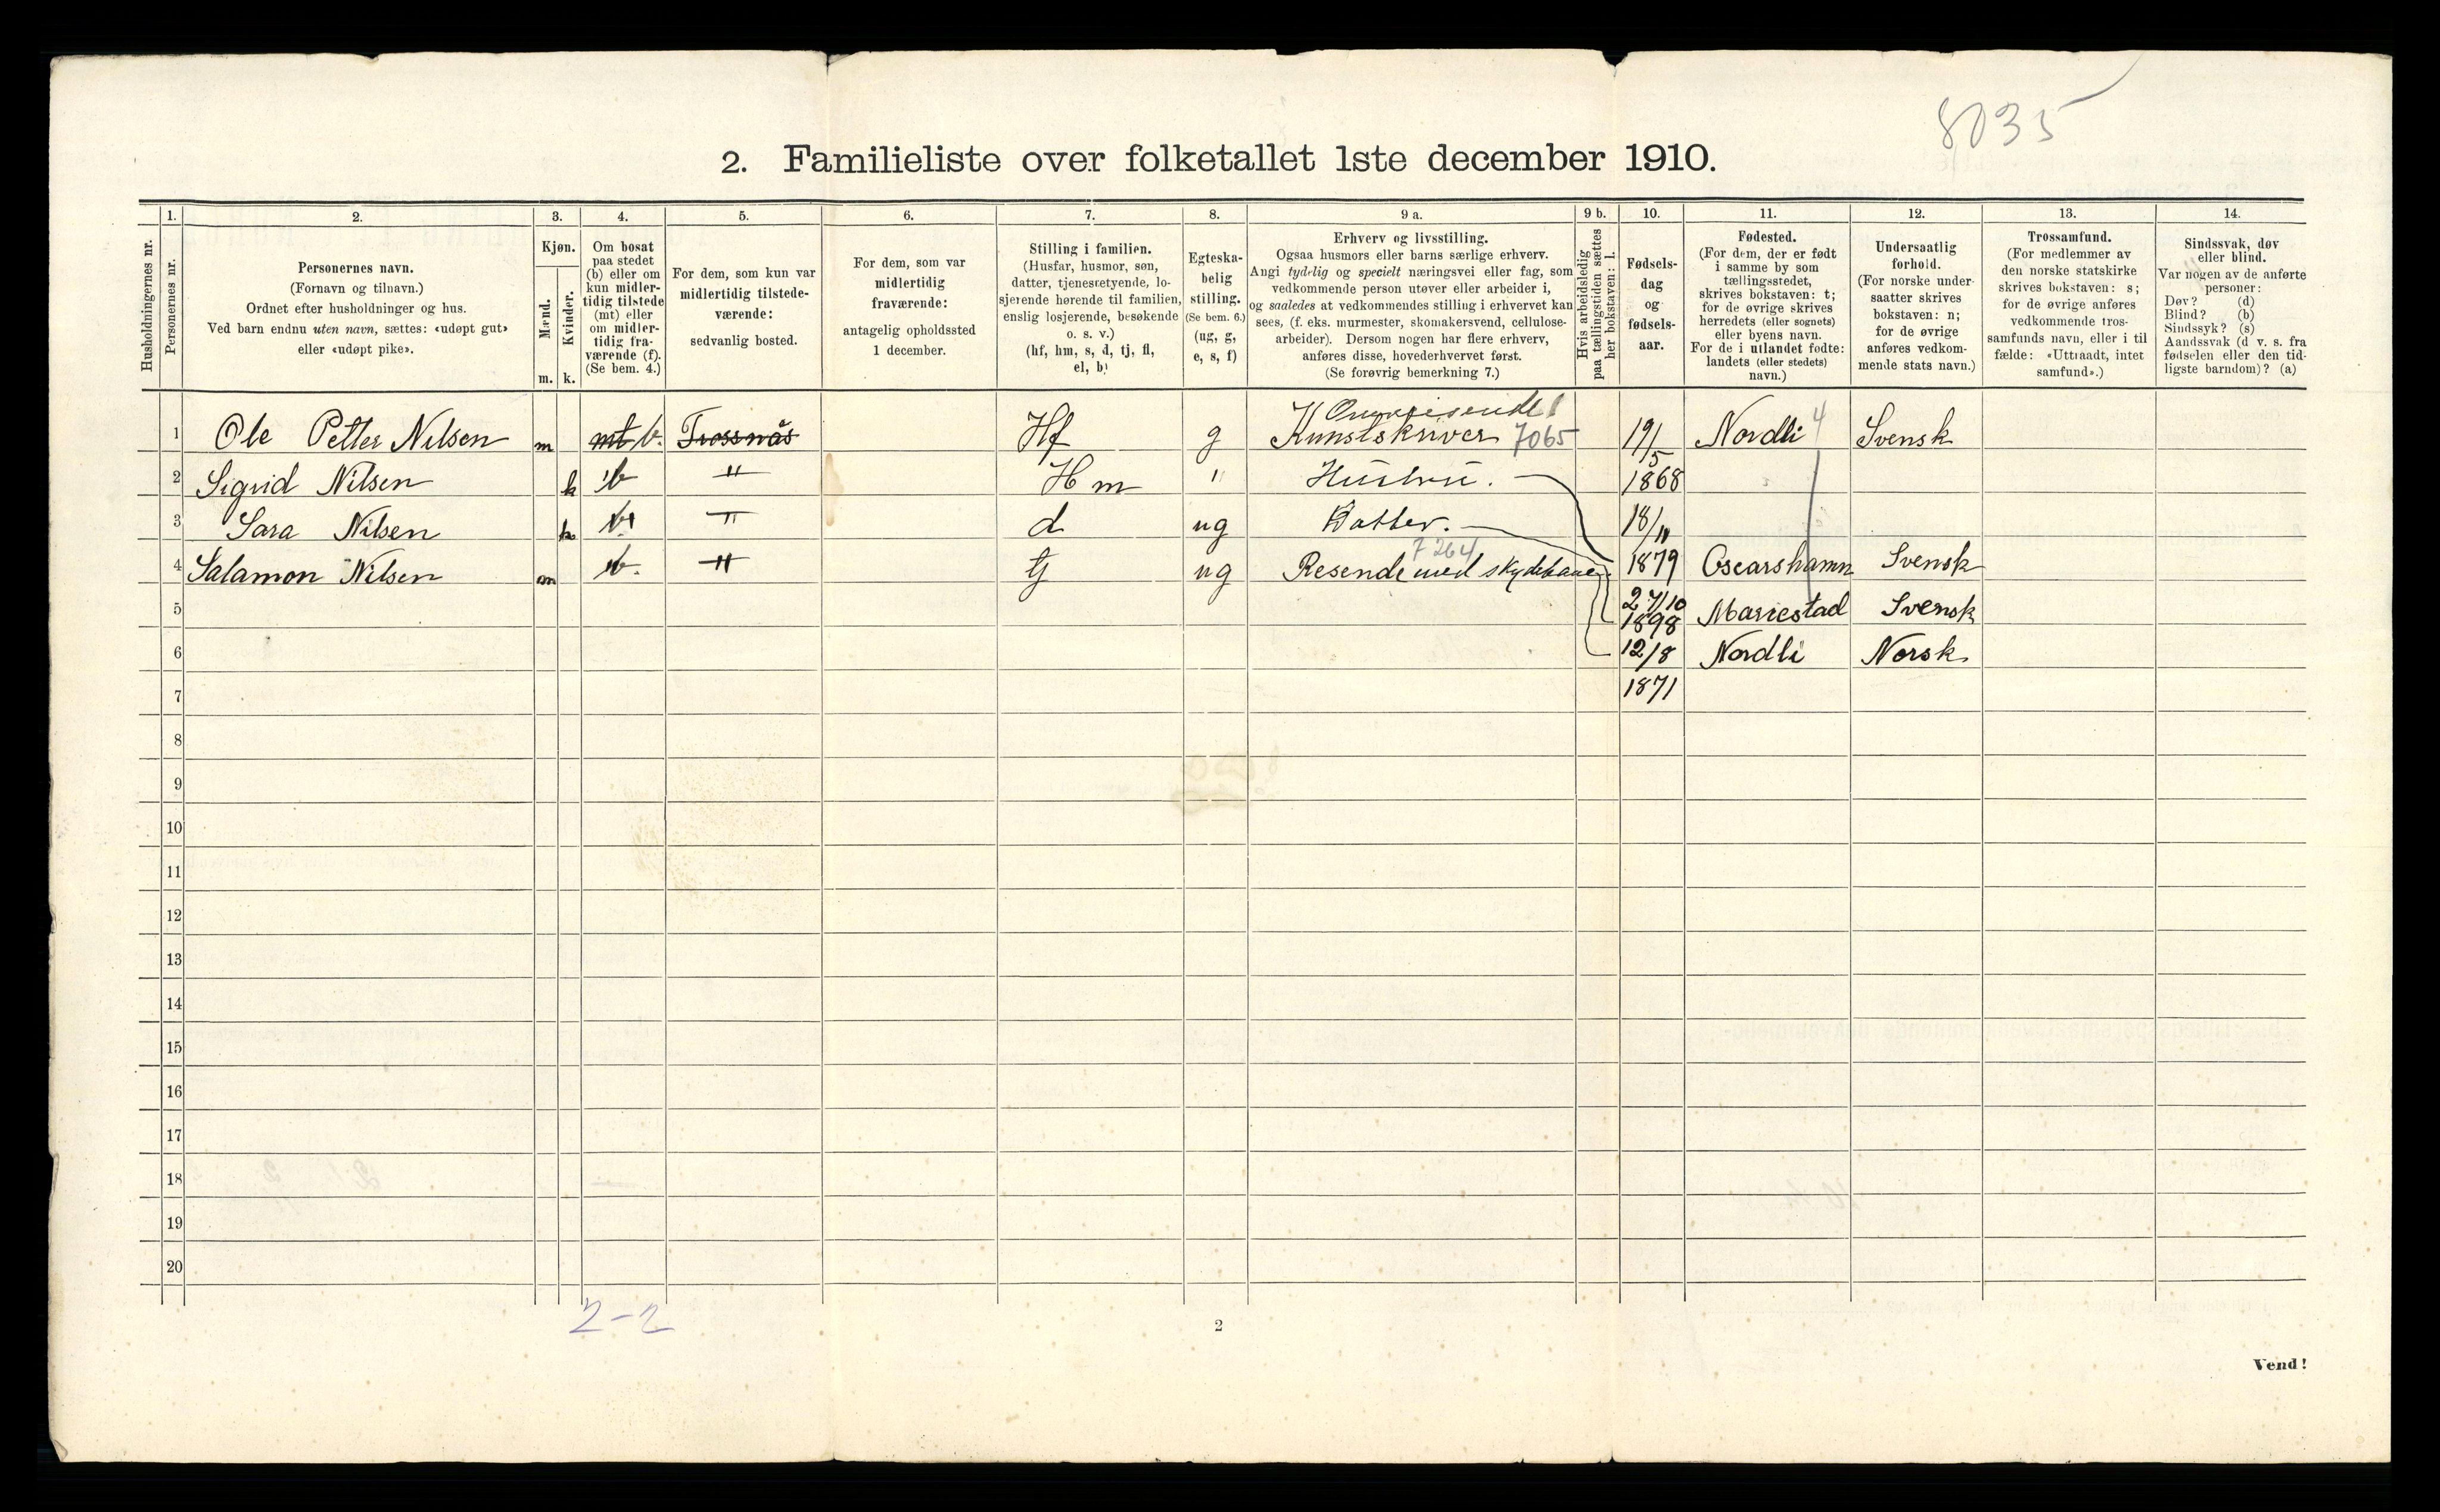 8035
2. Familieliste over folketallet 1ste december 1910.
Husholdningernes nr.
1.
Personernes nr.
2.
Personernes navn.
(Fornavn og tilnavn.)
Ordnet efter husholdninger og hus.
Ved barn endnu uten navn, sættes: «udøpt gut»
eller «udøpt pike».
3.
Kjøn.
Mænd.
Kvinder.
m. k.
4.
Om bosat
paa stedet
(b) eller om
kun midler-
tidig tilstede
(mt) eller
om midler-
tidig fra-
værende (f).
(Se bem. 4.)
5.
For dem, som kun var
midlertidig tilstede-
værende:
sedvanlig bosted.
6.
For dem, som var
midlertidig
fraværende:
antagelig opholdssted
1 december.
7.
Stilling i familien.
(Husfar, husmor, søn,
datter, tjenestetyende, lo-
sjerende hørende til familien,
enslig losjerende, besøkende
o. s. v.)
(hf, hm, s, d, tj, fl,
el, b)
8.
Egteska-
belig
stilling.
(Se bem. 6.)
(ug, g,
e, s, f)
9 a.
Erhverv og livsstilling.
Ogsaa husmors eller barns særlige erhverv.
Angi tydelig og specielt næringsvei eller fag, som
vedkommende person utøver eller arbeider i,
og saaledes at vedkommendes stilling i erhvervet kan
sees, (f. eks. murmester, skomakersvend, cellulose-
arbeider). Dersom nogen har flere erhverv,
anføres disse, hovederhvervet først.
(Se forøvrig bemerkning 7.)
9 b.
Hvis arbeidsledig
paa tællingstiden sættes
her bokstaven: l.
10.
Fødsels-
dag
og
fødsels-
aar.
11.
Fødested.
(For dem, der er født
i samme by som
tællingsstedet,
skrives bokstaven: t;
for de øvrige skrives
herredets (eller sognets)
eller byens navn.
For de i utlandet fødte:
landets (eller stedets)
navn.)
12.
Undersaatlig
forhold.
(For norske under-
saatter skrives
bokstaven: n;
for de øvrige
anføres vedkom-
mende stats navn.)
13.
Trossamfund.
(For medlemmer av
den norske statskirke
skrives bokstaven: s;
for de øvrige anføres
vedkommende tros-
samfunds navn, eller i til
fælde: «Uttraadt, intet
samfund».)
14.
Sindssvak, døv
eller blind.
Var nogen av de anførte
personer:
Døv? (d)
Blind? (b)
Sindssyk? (s)
Aandssvak (d. v. s. fra
fødselen eller den tid-
ligste barndom)? (a)
Omreisende
1 Ole Petter Nilsen m mt b. Trossnås Hf g Kunstskriver 7065 19/5 Nordli 4 Svensk
2 Sigrid Nilsen k b " H m " Hustru. 1868
3 Sara Nilsen k b " d ug Datter. 18/11
7264
4 Salamon Nilsen m b. " tj ug Resende med skydebane 1879 Oscarshamn Svensk
5 27/10 1898 Mariestad Svensk
6 12/8 Nordli Norsk
7 1871
8
9
10
11
12
13
14
15
16
17
18
19
20
2-2
2
Vend!